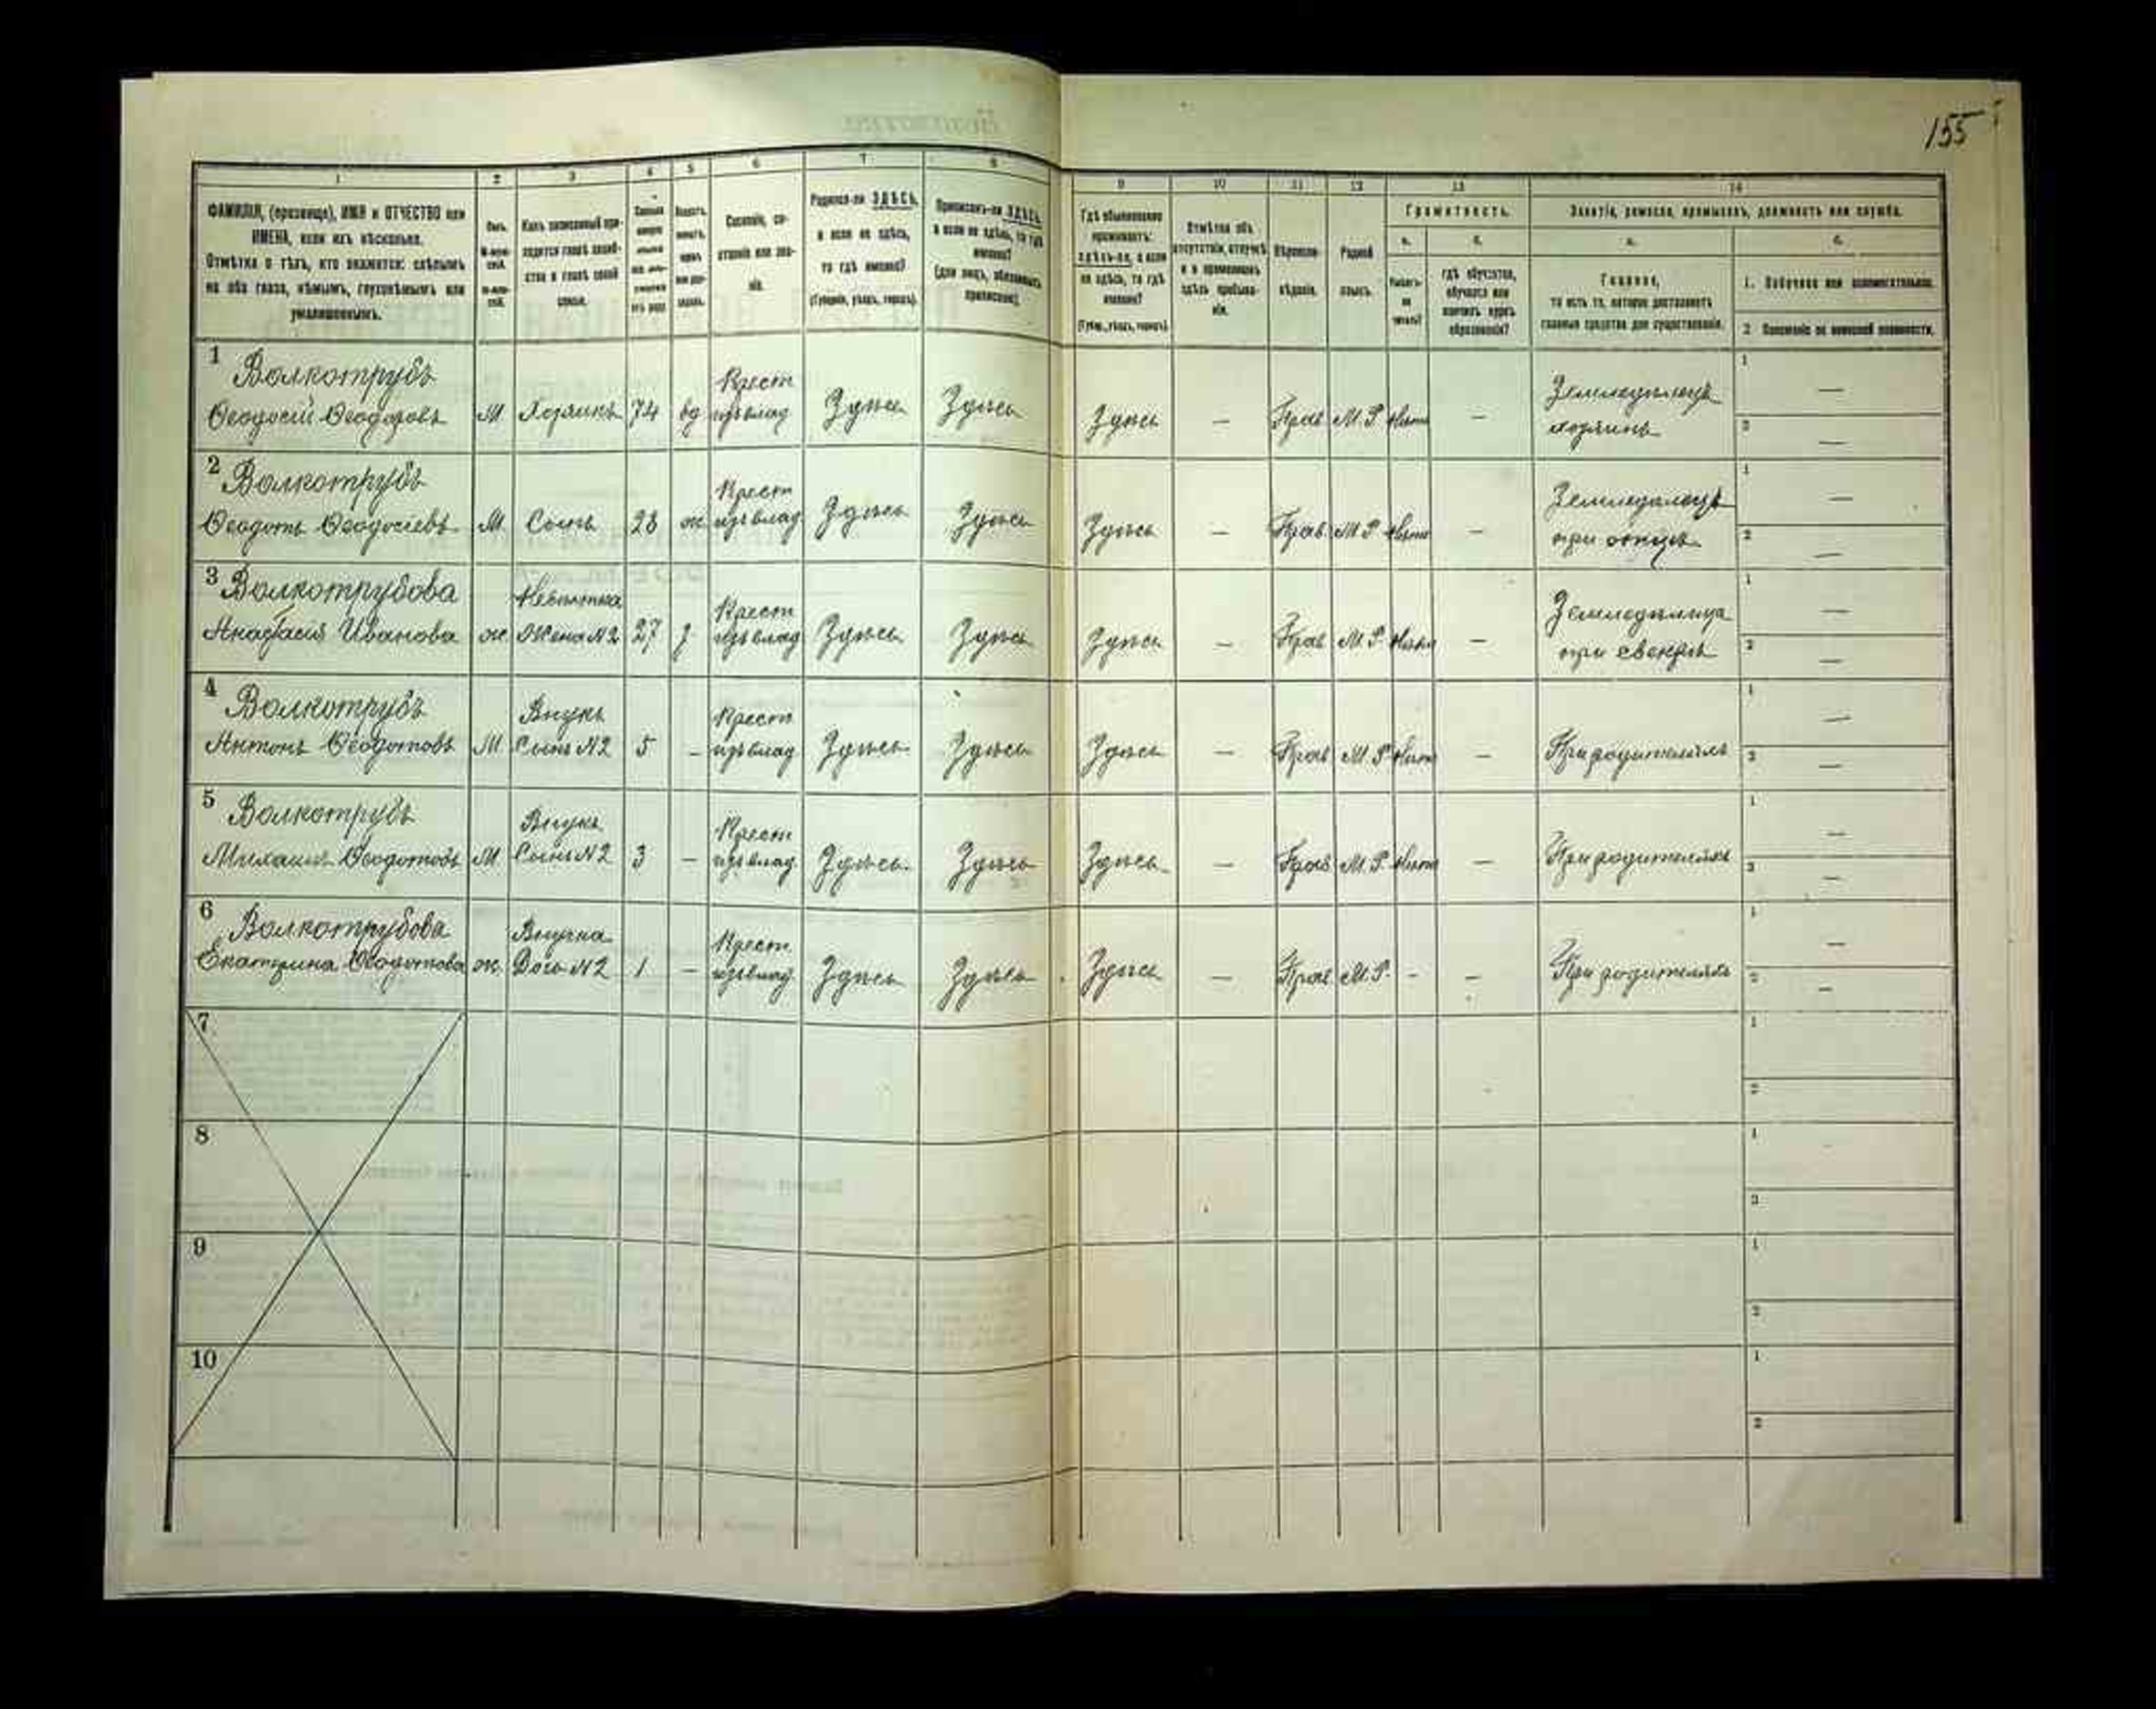 155
1 2 3 4 5 6 7 8 9 10 11 12 13 14
ФАМИЛІЯ, (прозвище), ИМЯ и ОТЧЕСТВО или
ИМЕНА, если ихъ нѣсколько.
Отмѣтка о тѣхъ, кто окажется: слѣпымъ
на оба глаза, нѣмымъ, глухонѣмымъ или
умалишеннымъ.
Полъ.
Какъ записанный при-
ходится главѣ хозяй-
ства и главѣ своей
семьи.
Сословіе, со-
стояніе или зва-
ніе.
Родился-ли ЗДѢСЬ,
а если не здѣсь,
то гдѣ именно?
(Губернія, уѣздъ, городъ).
Приписанъ-ли ЗДѢСЬ,
а если не здѣсь, то гдѣ
именно?
(для лицъ, обязанныхъ
припискою).
Гдѣ обыкновенно
проживаетъ:
здѣсь-ли, а если
не здѣсь, то гдѣ
именно?
(Губер., уѣздъ, городъ).
Отмѣтка объ
отсутствіи, отлучкѣ
и о временномъ
здѣсь пребыва-
ніи.
Вѣроиспо-
вѣданіе.
Родной
языкъ.
Грамотность.
а. б.
Умѣетъ-
ли
читать?
гдѣ обучается,
обучался или
кончилъ курсъ
образованія?
Занятіе, ремесло, промыселъ, должность или служба.
а. б.
Главное,
то есть то, которое доставляетъ
главныя средства для существованія.
1. Побочное или вспомогательное.
2. Положеніе по воинской повинности.
1 Волкотрубъ Крест Земледѣлецъ 1 —
Ѳеодосій Ѳеодоровъ М Хозяинъ 74 вд изъ влад Здѣсь Здѣсь Здѣсь — Прав М.Р. Нѣтъ — хозяинъ 2 —
2 Волкотрубъ Крест Земледѣлецъ 1 —
Ѳеодотъ Ѳеодосіевъ М. Сынъ 28 ж. изъ влад Здѣсь Здѣсь Здѣсь — Прав М.Р. Нѣтъ — при отцѣ 2 —
3 Волкотрубова Невѣстка Крест Земледѣлица 1 —
Анастасія Иванова ж. Жена №2 27 з изъ влад Здѣсь Здѣсь Здѣсь — Прав М.Р. Нѣтъ — при свекрѣ 2 —
4 Волкотрубъ Внукъ Крест 1 —
Антонъ Ѳеодотовъ М. Сынъ №2 5 — изъ влад Здѣсь Здѣсь Здѣсь — Прав М.Р. Нѣтъ — При родителяхъ 2 —
5 Волкотрубъ Внукъ Крест 1 —
Михаилъ Ѳеодотовъ М. Сынъ №2 3 — изъ влад Здѣсь Здѣсь Здѣсь — Прав М.Р. Нѣтъ — При родителяхъ 2 —
6 Волкотрубова Внучка Крест 1 —
Екатерина Ѳеодотова ж. Дочь №2 1 — изъ влад Здѣсь Здѣсь Здѣсь — Прав М.Р. - — При родителяхъ 2 —
7 1
2
8 1
2
9 1
2
10 1
2